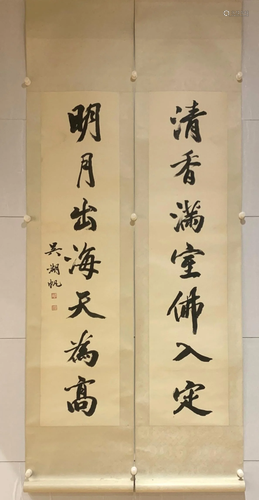 清香满室佛入定
明月出海天為高
吳湖帆